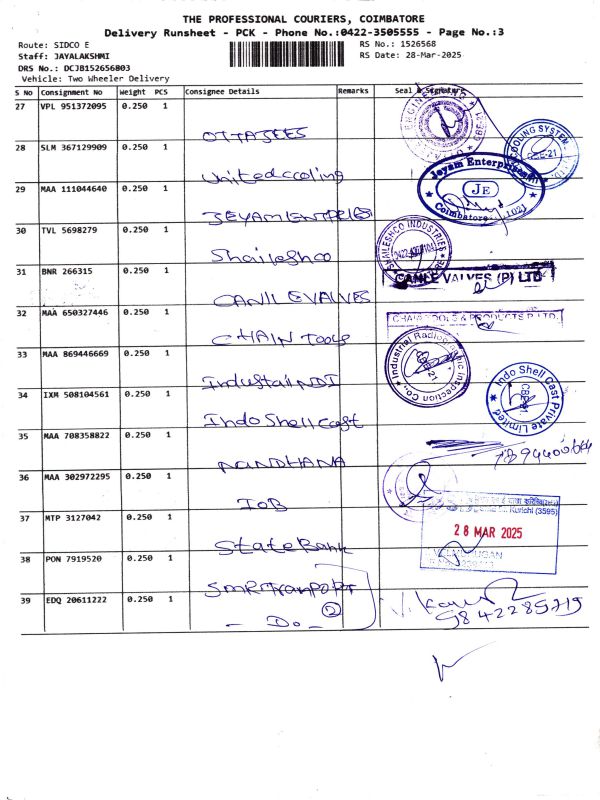 THE PROFESSIONAL COURIERS, COIMBATORE
Delivery Runsheet - PCK - Phone No.:0422-3505555 - Page No.:3
Route: SIDCO E
RS No.: 1526568
Staff: JAYALAKSHMI
RS Date: 28-Mar-2025
DRS No.: DCJB152656803
Vehicle: Two Wheeler Delivery
S No Consignment No Weight PCS Consignee Details Remarks Seal & Signature
27 VPL 951372095 0.250 1
OTTAJEES
28 SLM 367129909 0.250 1
United cooling
COOLING SYSTEM
29 MAA 111044640 0.250 1
Jeyam Enterprises
JE
Coimbatore
30 TVL 5698279 0.250 1
Shaileshco
SHAILESHCO INDUSTRIES
31 BNR 266315 0.250 1
CANLE VALVES (P) LTD
CANLE VALVES
32 MAA 650327446 0.250 1
CHAIN TOOLS & PRODUCTS P LTD
CHAIN TOOLS
33 MAA 869446669 0.250 1
Industrial Radiographic Inspection Co.,
34 IXM 508104561 0.250 1
Indo Shell Cast
Indo Shell Cast Private Limited
35 MAA 708358822 0.250 1
NANDHANA
36 MAA 302972295 0.250 1
IOB
37 MTP 3127042 0.250 1
28 MAR 2025
State Bank
38 PON 7919520 0.250 1
SMR Tranport
39 EDQ 20611222 0.250 1
2
- Do -
9842285715